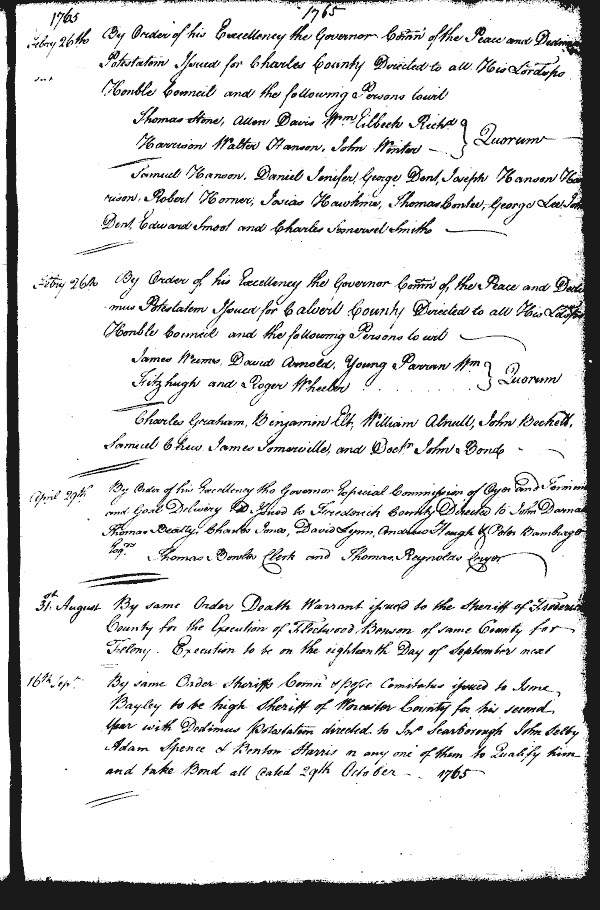 1765 1765
Febry 26th By Order of his Excellency the Governor Comn of the Peace and Dedimus
Potestatem Issued for Charles County Directed to all His Lordsps
Honble Council and the following Persons to wit
Thomas Stone, Allen Davis Wm Eilbeck Richd
Harrison Walter Hanson, John Winter } Quorum
Samuel Hanson, Daniel Jenifer, George Dent, Joseph Hanson Har
rison, Robert Horner, Josias Hawkins, Thomas Contee, George Lee, John
Dent, Edward Smoot and Charles Somerset Smith
Febry 26th By Order of his Excellency the Governor Comn of the Peace and Dedi
mus Potestatem Issued for Calvert County Directed to all His Ldsps
Honble Council and the following Persons to wit
James Weems, David Arnold, Young Parran Wm
Fitzhugh and Roger Wheeler } Quorum
Charles Graham, Benjamin Elt, William Allnutt, John Beckett,
Samuel Chew James Somerville, and Doctr John Bond
April 29th By Order of his Excellency the Governor Especial Commission of Oyer and Terminer
and Goal Delivery Issued to Frederick County Directed to John Darnall
Thomas Beatty, Charles Jones, David Lynn, Andrew Heugh & Peter Bamburger
Esqrs Thomas Bowles Clerk and Thomas Reynolds Cryer
31st August By same Order Death Warrant issued to the Sheriff of Frederick
County for the Execution of Fleetwood Benson of same County for
Felony. Execution to be on the eighteenth Day of September next
16th Sept. By same Order Sheriffs Comn & posse Comitatus issued to Isme
Bayley to be high Sheriff of Worcester County for his second
Year with Dedimus Potestatem directed to Jno Scarborough John Selby
Adam Spence & Benton Harris or any one of them to Qualify him
and take Bond all dated 29th October 1765